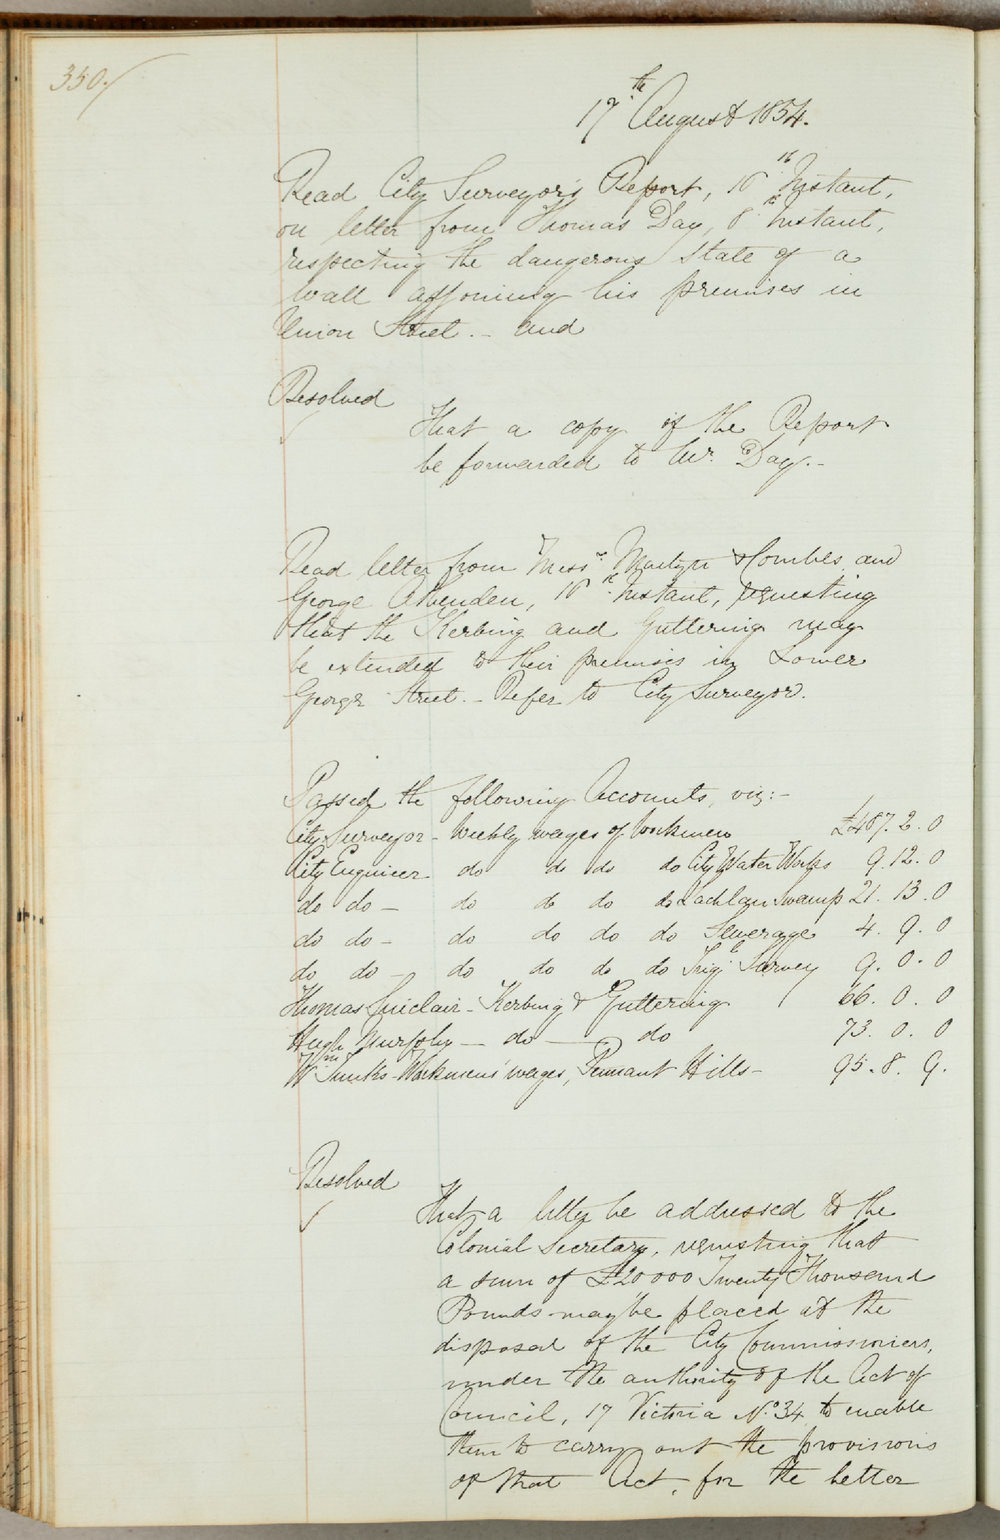 350.
17th August 1854.
Read City Surveyor's Report, 16th Instant,
on letter from Thomas Day, 8th Instant,
respecting the dangerous State of a
wall adjoining his premises in
Union Street. - and
Resolved
That a copy of the Report
be forwarded to Mr. Day. -
Read letter from Messrs Martyn & Combes and
George, 16th Instant, requesting
that the Kerbing and Guttering may
be extended to their premises in Lower
George Street. - Refer to City Surveyor.
Passed the following Accounts, viz: -
City Surveyor - Weekly wages of Workmen £487. 2. 0
City Engineer do do do do City Water Works 9. 12. 0
do do - do do do do Lachlan Swamp 21. 13. 0
do do - do do do do Sewerage 4. 9. 0
do do - do do do do Trigl Survey 9. 0. 0
Thomas Sinclair - Kerbing & Guttering 66. 0. 0
Hugh Murphy - do - do 73. 0. 0
Wm Workmens' wages, Pennant Hills - 95. 8. 9.
Resolved
That a letter be addressed to the
Colonial Secretary, requesting that
a sum of £20000 Twenty Thousand
Pounds may be placed at the
disposal of the City Commissioners,
under the authority of the Act of
Council, 17 Victoria No. 34 to enable
them to carry out the provisions
of that Act, for the better